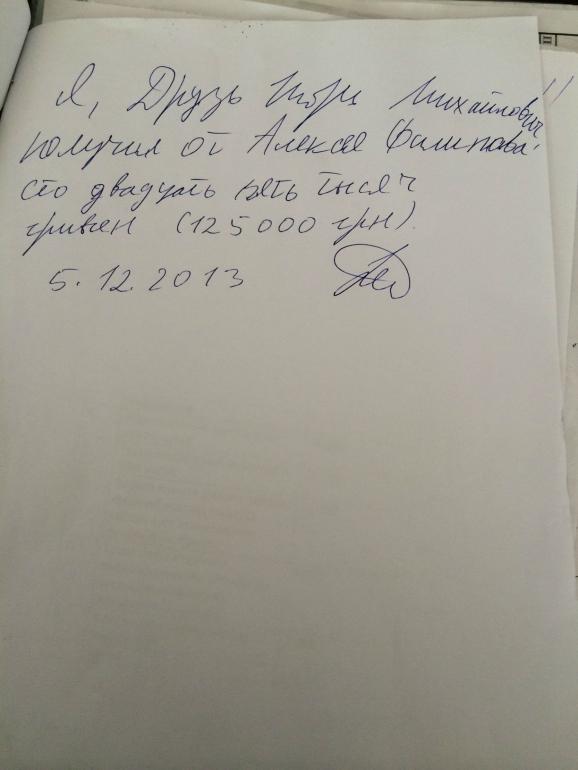 Я, Друзь Игорь Михайлович
получил от Алексея Филипова
сто двадцать пять тысяч
гривен (125000 грн).
5.12.2013